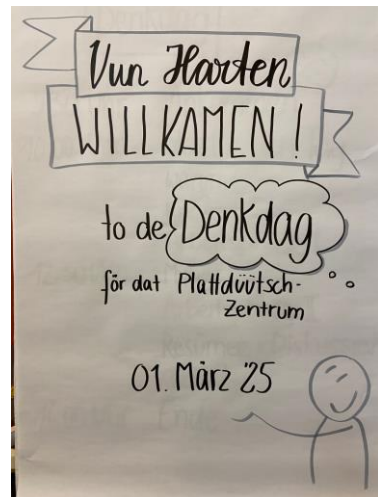 Vun Harten
WILLKAMEN!
to de Denkdag
för dat Plattdüütsch-
Zentrum
01. März '25